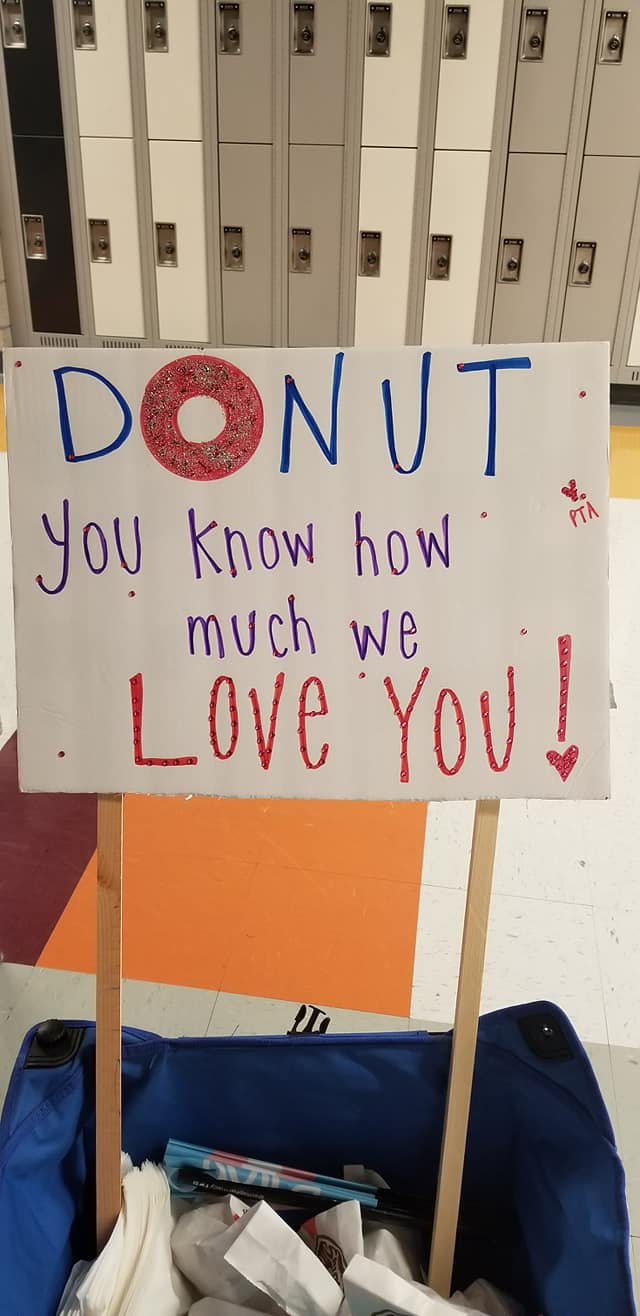 DONUT
you know how
PTA
much we
LOVE YOU!